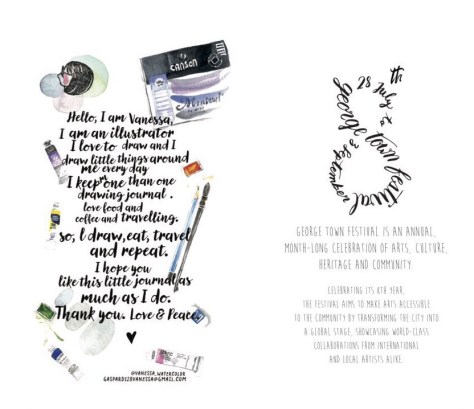 CANSON
Hello, I am Vanessa,
I am an illustrator
I love to draw and I
draw little things around
me every day
I keep more than one
drawing journal.
love food and
coffee and travelling.
so, I draw, eat, travel
and repeat.
I hope you
like this little journal as
much as I do.
Thank you. Love & Peace
@VANESSA_WATERCOLOR
28 July to
george town festival
September
GEORGE TOWN FESTIVAL IS AN ANNUAL,
MONTH-LONG CELEBRATION OF ARTS, CULTURE,
HERITAGE AND COMMUNITY.
CELEBRATING ITS 8TH YEAR,
THE FESTIVAL AIMS TO MAKE ARTS ACCESSIBLE
TO THE COMMUNITY BY TRANSFORMING THE CITY INTO
A GLOBAL STAGE, SHOWCASING WORLD-CLASS
COLLABORATIONS FROM INTERNATIONAL
AND LOCAL ARTISTS ALIKE.